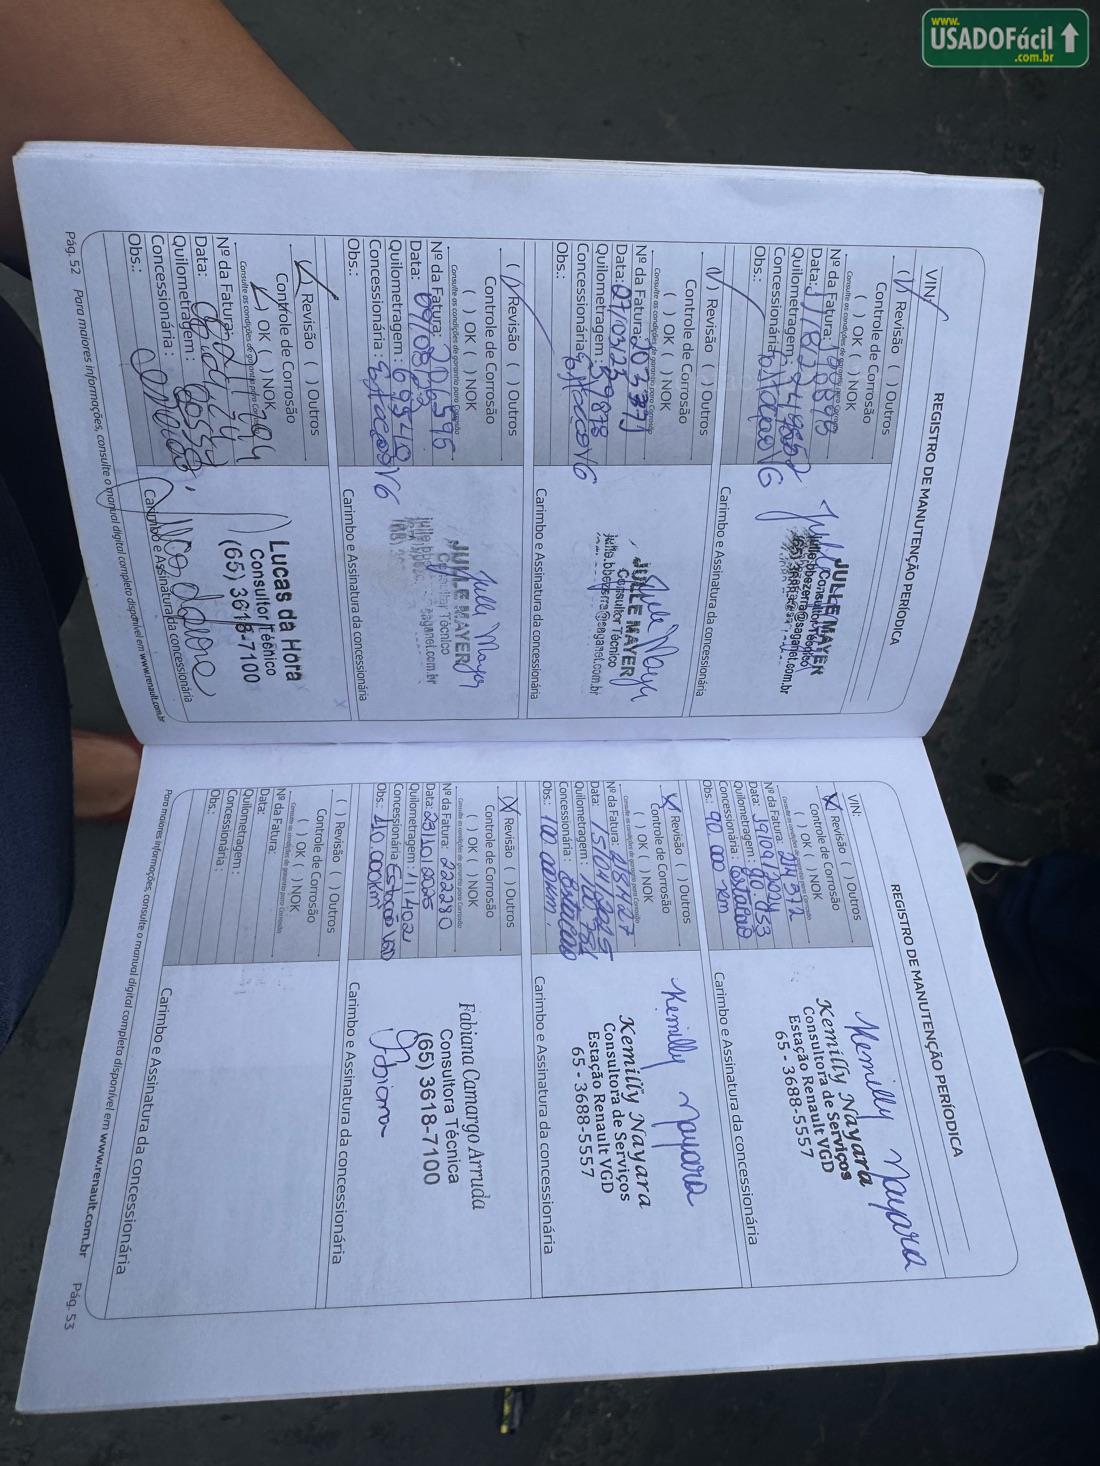 www.
USADOFácil
.com.br
REGISTRO DE MANUTENÇÃO PERIÓDICA
VIN:
Revisão ( ) Outros
Controle de Corrosão
( ) OK ( ) NOK
Consulte as condições de garantia para Corrosão
Nº da Fatura:
Data:
Quilometragem:
Concessionária: Estação VG
Obs.:
JULLE MAYER
Consultor Técnico
julle.bbezerra@saganet.com.br
Carimbo e Assinatura da concessionária
Revisão ( ) Outros
Controle de Corrosão
( ) OK ( ) NOK
Consulte as condições de garantia para Corrosão
Nº da Fatura: 203371
Data: 07/03/23
Quilometragem:
Concessionária: Estação VG
Obs.:
Julle Mayer
JULLE MAYER
Consultor Técnico
julle.bbezerra@saganet.com.br
Carimbo e Assinatura da concessionária
Revisão ( ) Outros
Controle de Corrosão
( ) OK ( ) NOK
Consulte as condições de garantia para Corrosão
Nº da Fatura: 206595
Data:
Quilometragem: 69340
Concessionária: Estação VG
Obs.:
Julle Mayer
JULLE MAYER
Técnico
saganet.com.br
Carimbo e Assinatura da concessionária
Revisão ( ) Outros
Controle de Corrosão
OK ( ) NOK
Consulte as condições de garantia para Corrosão
Nº da Fatura:
Data:
Quilometragem:
Concessionária:
Obs.:
Lucas da Hora
Consultor Técnico
(65) 3618-7100
Carimbo e Assinatura da concessionária
Pág. 52 Para maiores informações, consulte o manual digital completo disponível em www.renault.com.br
REGISTRO DE MANUTENÇÃO PERÍODICA
VIN:
(X) Revisão ( ) Outros
Controle de Corrosão
( ) OK ( ) NOK
Consulte as condições de garantia para Corrosão
Nº da Fatura: 214372
Data: 19/09/2024
Quilometragem: 90.053
Concessionária: Estação
Obs.: 90.000 km
Kemilly Nayara
Kemilly Nayara
Consultora de Serviços
Estação Renault VGD
65 - 3688-5557
Carimbo e Assinatura da concessionária
(X) Revisão ( ) Outros
Controle de Corrosão
( ) OK ( ) NOK
Consulte as condições de garantia para Corrosão
Nº da Fatura: 218427
Data: 15/04/2025
Quilometragem:
Concessionária: Estação
Obs.: 100.000km
Kemilly Nayara
Kemilly Nayara
Consultora de Serviços
Estação Renault VGD
65 - 3688-5557
Carimbo e Assinatura da concessionária
(X) Revisão ( ) Outros
Controle de Corrosão
( ) OK ( ) NOK
Consulte as condições de garantia para Corrosão
Nº da Fatura: 222280
Data: 23/10/2025
Quilometragem: 111402
Concessionária: Estação VGD
Obs.: 110.000km
Fabiana Camargo Arruda
Consultora Técnica
(65) 3618-7100
Fabiana
Carimbo e Assinatura da concessionária
( ) Revisão ( ) Outros
Controle de Corrosão
( ) OK ( ) NOK
Consulte as condições de garantia para Corrosão
Nº da Fatura:
Data:
Quilometragem:
Concessionária:
Obs.:
Carimbo e Assinatura da concessionária
Para maiores informações, consulte o manual digital completo disponível em www.renault.com.br Pág. 53